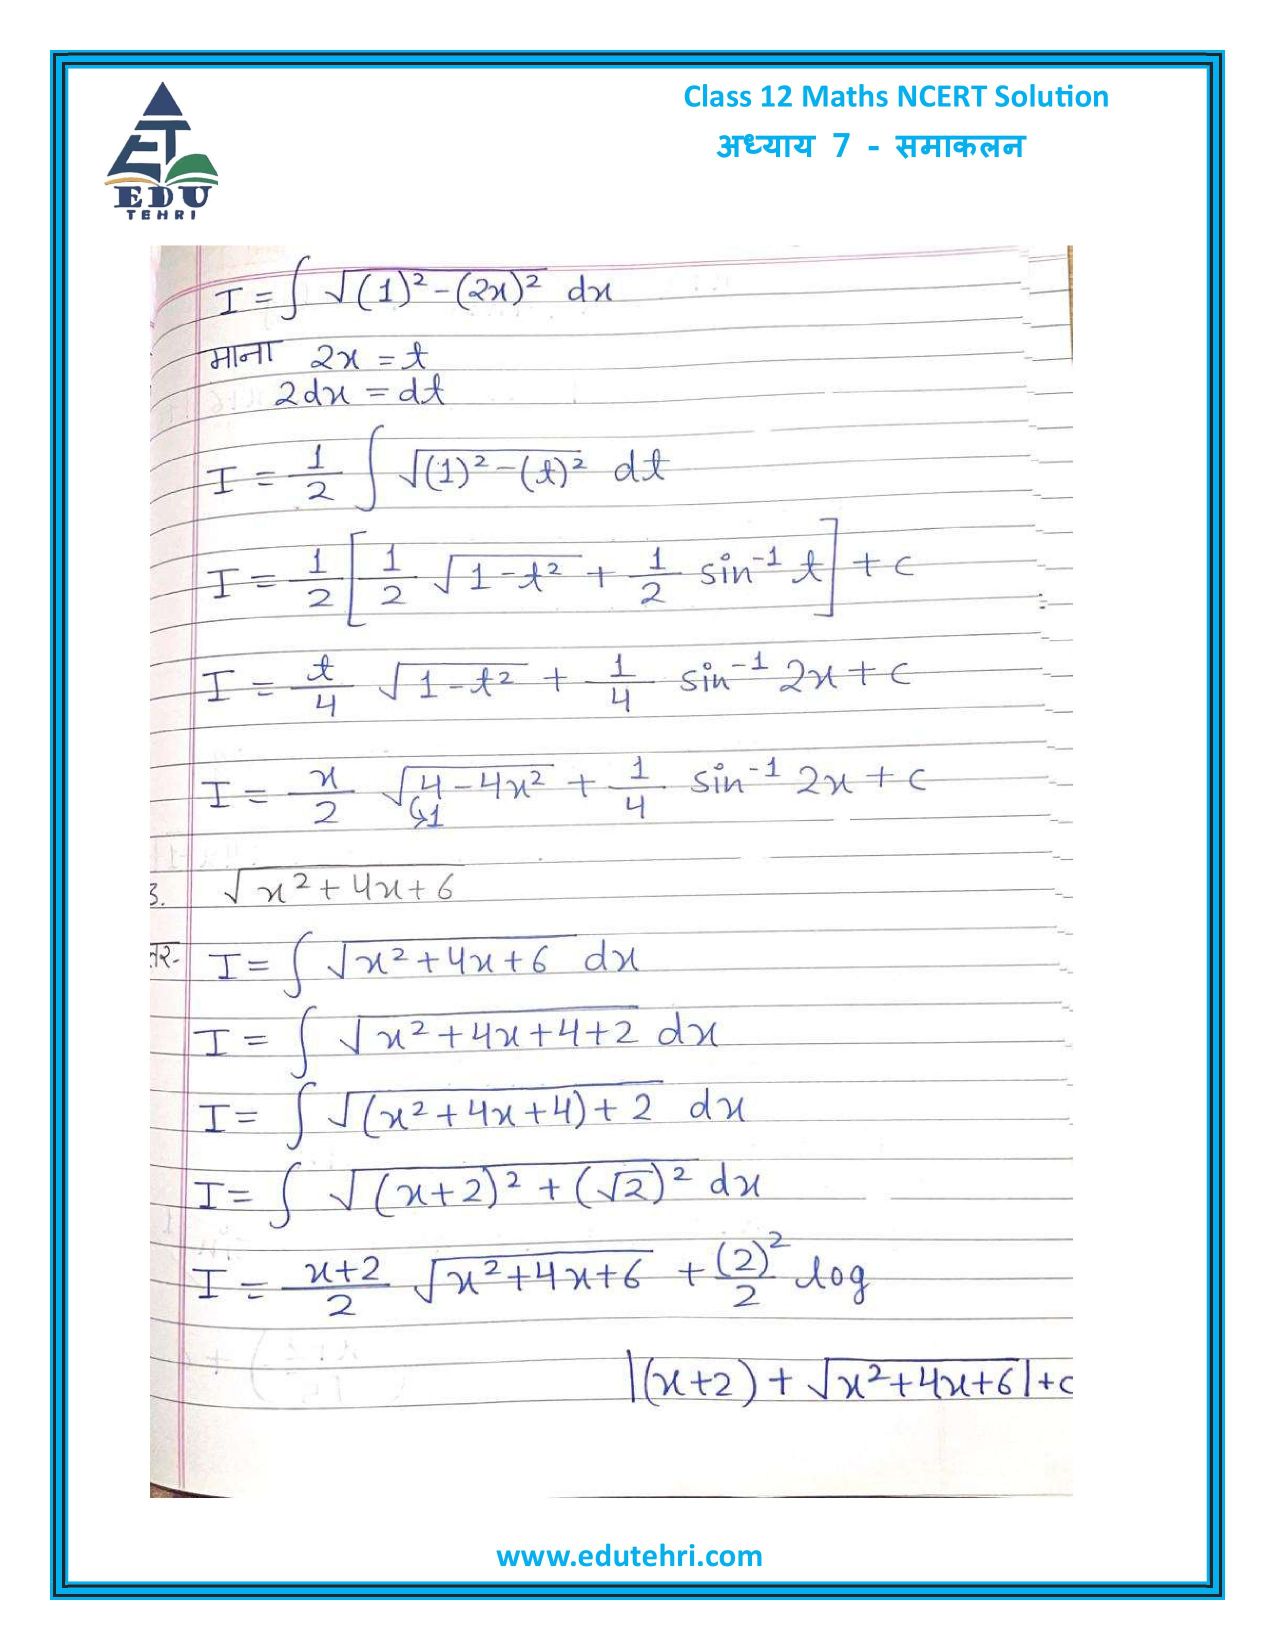 Class 12 Maths NCERT Solution
अध्याय 7 - समाकलन
EDU
TEHRI
I = ∫ √(1)² - (2x)² dx
माना 2x = t
2dx = dt
I = 1/2 ∫ √(1)² - (t)² dt
I = 1/2 [1/2 √1 - t² + 1/2 sin⁻¹ t] + c
I = t/4 √1 - t² + 1/4 sin⁻¹ 2x + c
I = x/2 √4 - 4x² + 1/4 sin⁻¹ 2x + c
↳1
3. √x² + 4x + 6
तर- I = ∫ √x² + 4x + 6 dx
I = ∫ √x² + 4x + 4 + 2 dx
I = ∫ √(x² + 4x + 4) + 2 dx
I = ∫ √(x+2)² + (√2)² dx
I = x+2/2 √x² + 4x + 6 + (2)²/2 log
|(x+2) + √x² + 4x + 6| + c
www.edutehri.com